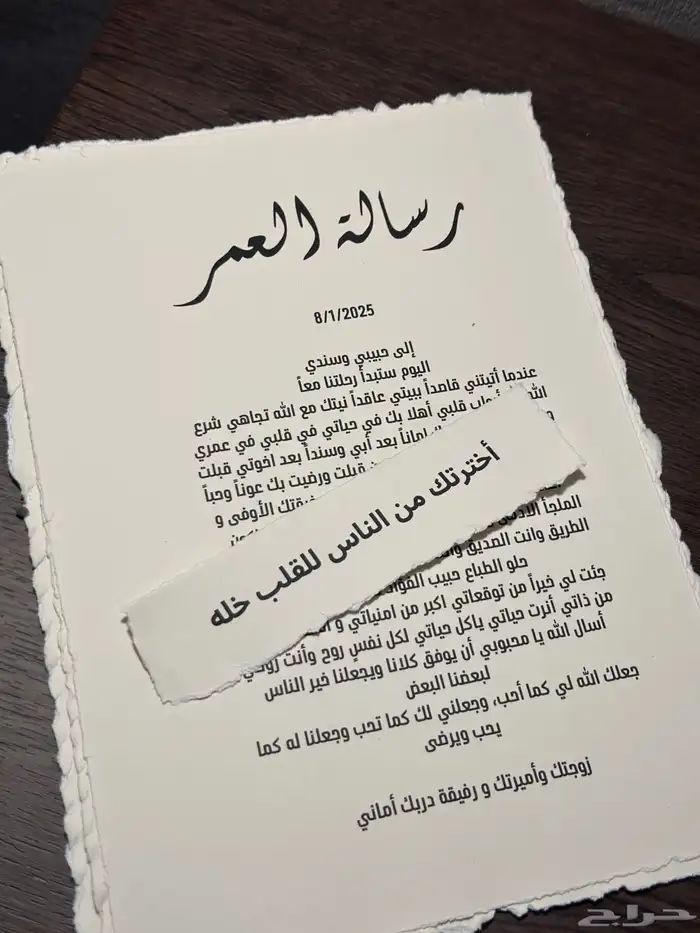 رسالة العمر
8/1/2025
إلى حبيبي وسندي
اليوم ستبدأ رحلتنا معاً
عندما أتيتني قاصداً بيتي عاقداً نيتك مع الله تجاهي شرع
قلبي أهلا بك في حياتي في قلبي في عمري
بعد أبي وسنداً بعد اخوتي قبلت
قبلت ورضيت بك عوناً وحباً
الأوفى و
أخترتك من الناس للقلب خله
الملجأ
الطريق وانت الصديق
حلو الطباع حبيب
جئت لي خيراً من توقعاتي اكبر من امنياتي و
من ذاتي أنرت حياتي ياكل حياتي لكل نفسٍ روح وأنت
أسال الله يا محبوبي أن يوفق كلانا ويجعلنا خير الناس
لبعضنا البعض
جعلك الله لي كما أحب، وجعلني لك كما تحب وجعلنا له كما
يحب ويرضى
زوجتك وأميرتك و رفيقة دربك أماني
حراج